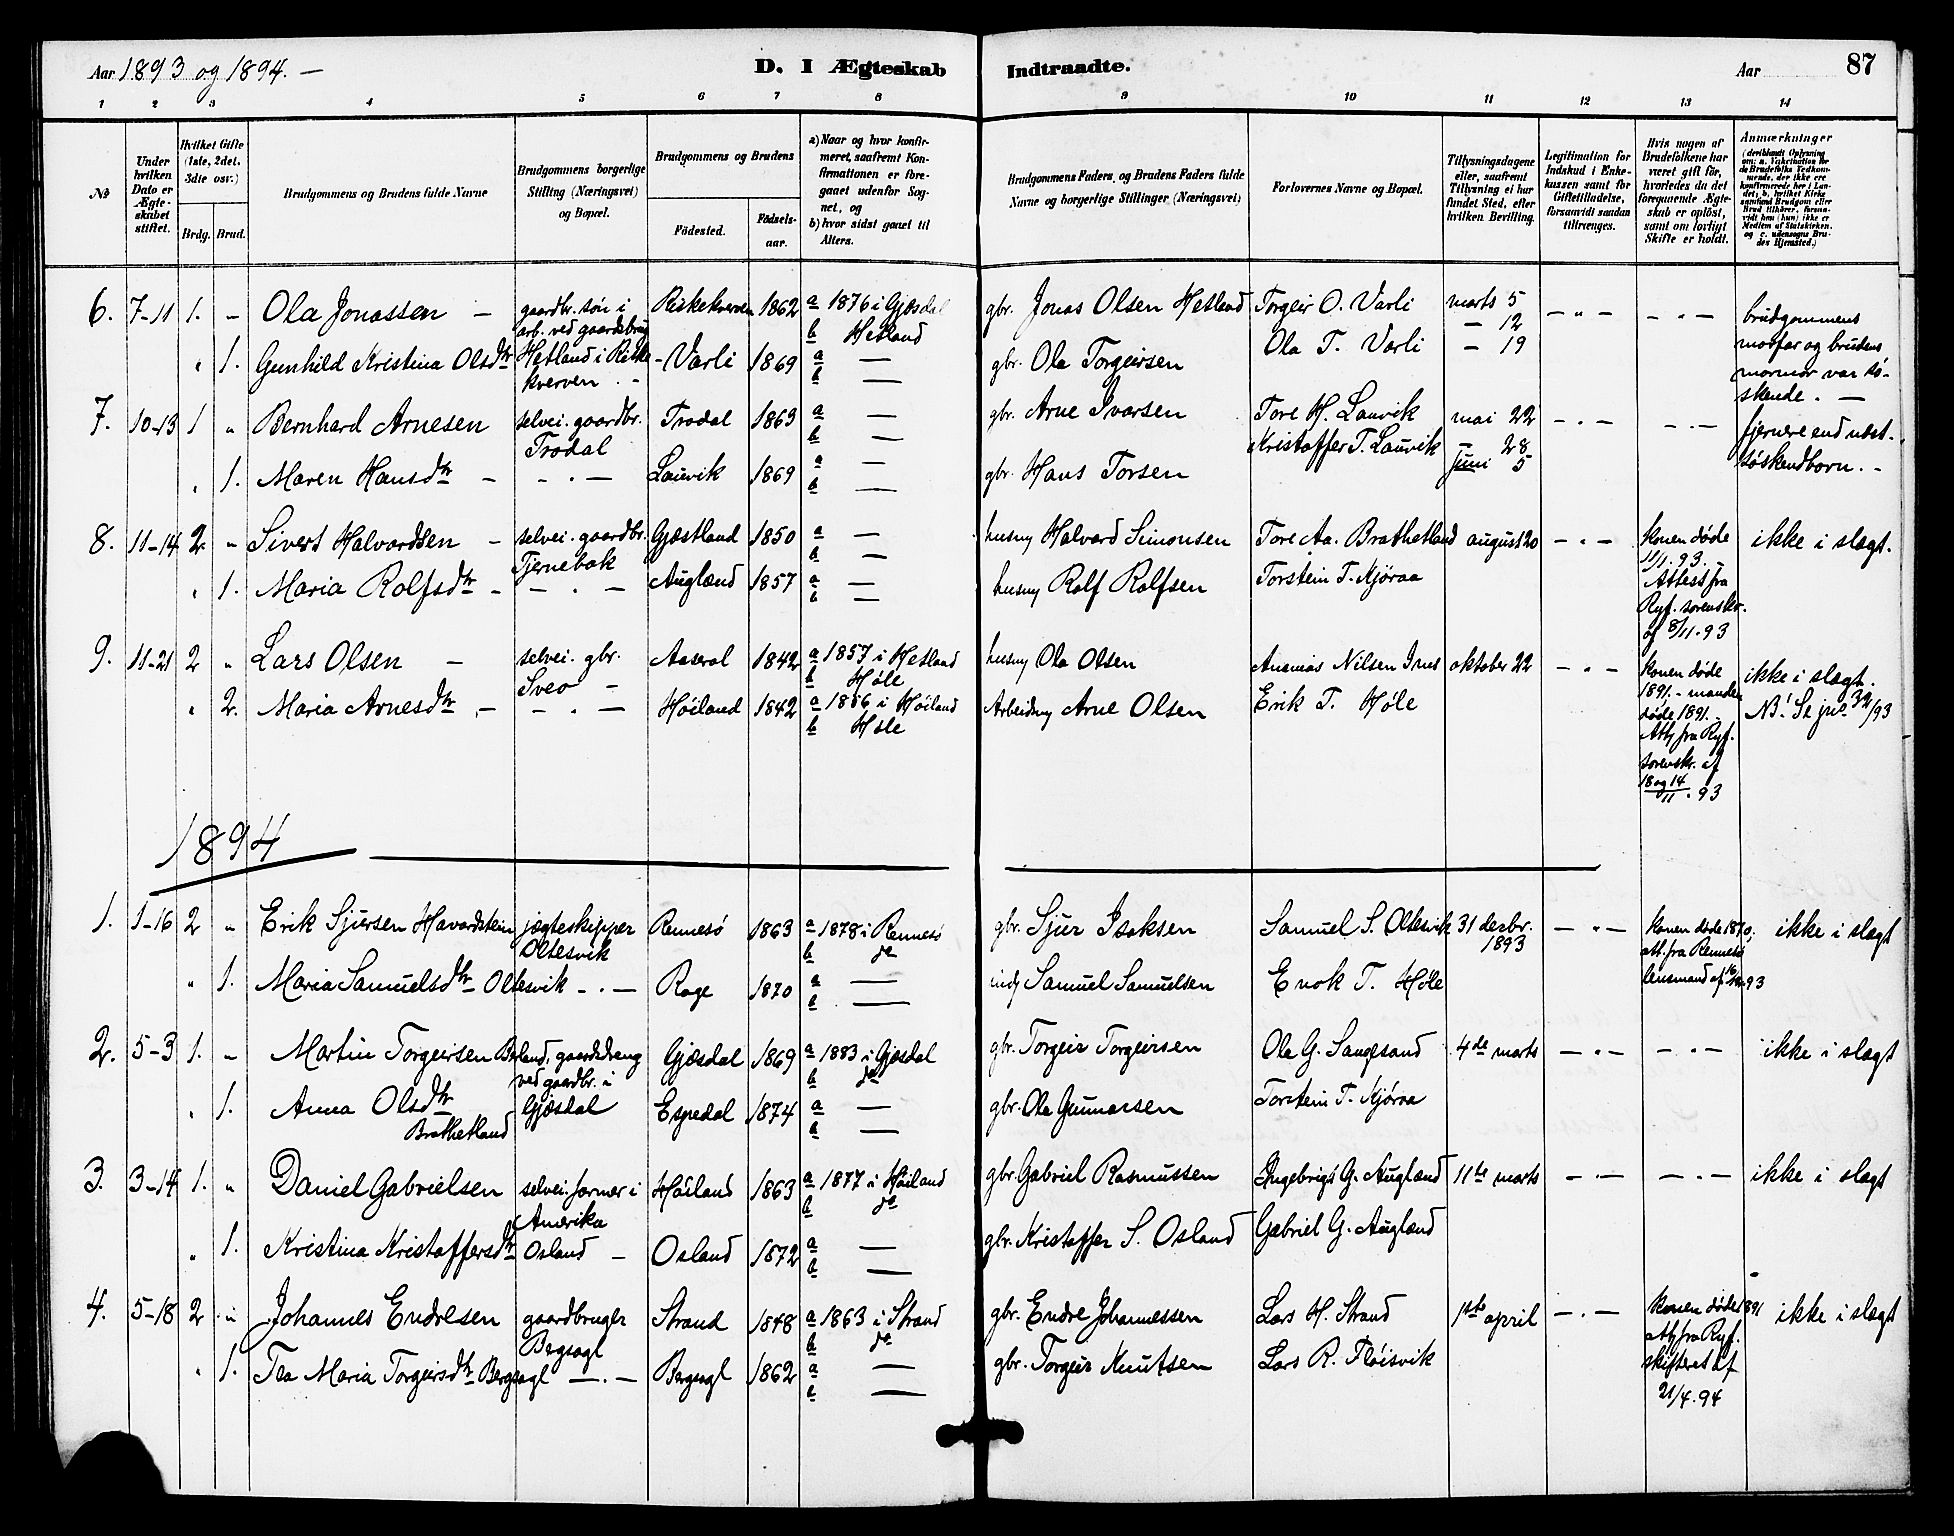 Aar 1893 og 1894. —
D. I Ægteskab Indtraadte.
Aar 87
1 2 3 4 5 6 7 8 9 10 11 12 13 14
No
Under hvilken Dato er Ægteskabet stiftet.
Hvilket Gifte (1ste, 2det, 3die osv.)
Brdg. Brud.
Brudgommens og Brudens fulde Navne
Brudgommens borgerlige Stilling (Næringsvei) og Bopæl.
Brudgommens og Brudens
Födested.
Födselsaar.
a) Naar og hvor konfirmeret, saafremt Konfirmationen er foregaaet udenfor Sognet, og
b) hvor sidst gaaet til Alters.
Brudgommens Faders, og Brudens Faders fulde Navne og borgerlige Stillinger (Næringsvei)
Forlovernes Navne og Bopæl.
Tillysningsdagene eller, saafremt Tillysning ei har fundet Sted, efter hvilken Bevilling.
Legitimation for Indskud i Enkekassen samt for Giftetilladelse, forsaavidt saadan tiltrænges.
Hvis nogen af Brudefolkene har været gift för, hvorledes da det foregaaende Ægteskab er oplöst, samt om lovligt Skifte er holdt.
Anmærkninger
6. 7-11 1. " Ola Jonassen —
gaardbr. søn i
arb. ved gaardsbrug
Hetland i Riske-
kverven. -
Riskekverven 1862 a 1876 i Gjesdal
b Hetland
gbr. Jonas Olsen Hetland
Torgeir O. Varli
marts 5
— 12
— 19
— " —
— " —
brudgommens
morfar og brudens
mormor var sø-
skende. —
" 1. Gunhild Kristina Olsdtr
- Varli 1869 a —
b —
gbr. Ola Torgeirsen
Ola T. Varli
7. 10-13 1 " Bernhard Arnesen
selvei. gaardbr.
Trodal
Trodal 1863 a —
b —
gbr. Arne Ivarsen
Tore H. Lauvik
mai 22
— 28
juni 5
— " —
— " —
fjernere end næst-
søskendborn. -
" 1. Maren Hansdtr —
- . —
Lauvik 1869 a —
b —
gbr. Hans Torsen
Kristoffer T. Lauvik
8. 11-14 2. " Sivert Halvardsen -
selvei. gaardbr.
Tjernebak
Gjestland 1850 a —
b —
husm Halvard Simonsen
Tore Aa. Brathetland
august 20
— " —
Konen døde
11/1. 93.
Attest fra
Ryf. sorenskr.
af 8/11. 93
ikke i slægt.
" 1. Maria Rolfsdtr -
— . —
Augland 1857 a —
b —
husm Rolf Rolfsen
Torstein T. Kjøraa
9. 11-21 2 " Lars Olsen —
selvei. gbr.
Sveo —
Aaseral 1842 a 1857 i Hetland
b Høle
husm Ola Olsen
Ananias Nilsen Ims
oktober 22
— " —
Konen døde
1891. - manden
døde 1891. -
Att. fra Ryf.
sorenskr. af
18 og 14/11. 93
ikke i slægt.
" 2. Maria Arnesdtr -
— . —
Höiland 1842 a 1856 i Höiland
b Høle
Arbeidsm Arne Olsen
Erik T. Høle
1894
1. 1-16 2 " Erik Sjursen Havardstein
jægteskipper
Oltesvik
Rennesö 1863 a 1878 i Rennesö
b do
gbr. Sjur Isaksen
Samuel S. Oltesvik
31 decbr.
1893
— " —
Konen døde
att. fra Rennesö
lensmand af
ikke i slægt
" 1. Maria Samuelsdtr Oltesvik — . —
Rage 1870 a —
b —
Samuel Samuelsen
Enok T. Høle
2. 5-3 1. " Martin Torgeirsen
gaardsdreng
ved gaardbr. i
Gjesdal
Gjesdal 1869 a 1883 i Gjesdal
b do
gbr. Torgeir Torgeirsen
Ola G. Sangesand
4de marts
— " —
— . —
ikke i slægt
" 1. Anna Olsdtr
Brathetland
Espedal 1874 a —
b —
gbr. Ola Gunnarsen
Torstein T. Kjøraa
3. 3-14 1. " Daniel Gabrielsen
selvei. farmer i
Amerika
Höiland 1863 a 1877 i Höiland
b do
gbr. Gabriel Rasmussen
Ingebrigt G. Augland
11te marts
— . —
— . —
ikke i slægt
" 1. Kristina Kristoffersdtr
Osland —
Osland 1872 a —
b —
gbr. Kristoffer S. Osland
Gabriel G. Augland
4. 5-18 2 " Johannes Endresen
gaardbruger
Bergsagl
Strand 1848 a 1863 i Strand
b do
gbr. Endre Johannessen
Lars H. Strand
1ste april
— . —
Konen døde 1891
Att. fra Ryf.
skifteret af
21/4. 94
ikke i slægt
" 1. Tea Maria Torgeirsdtr Bergsagl — . —
Bergsagl 1862 a —
b —
gbr. Torgeir Knutsen
Lars R. Fløisvik